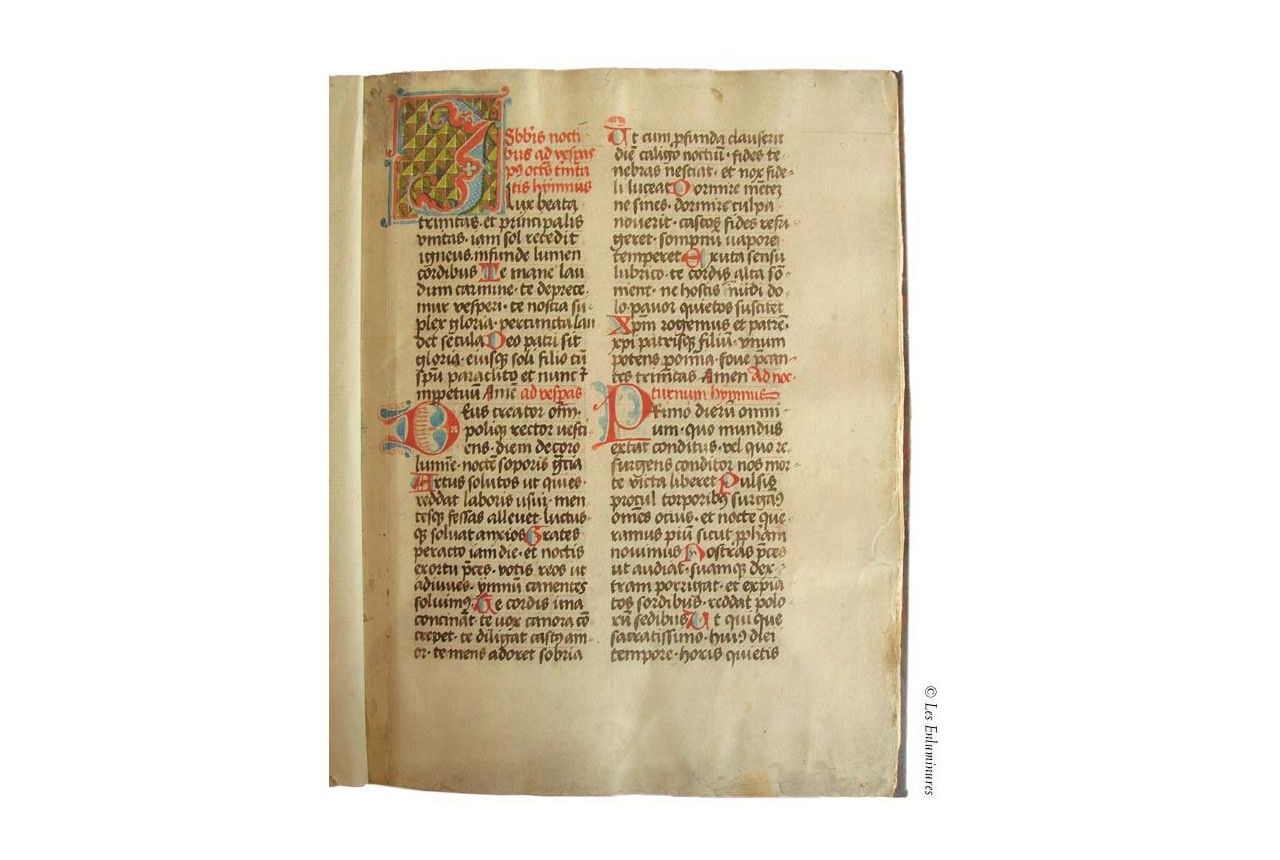 Sbb̄is nocti
bus ad vesp̄as
p9 octa᷒ t'nita
tis hymnus
O lux beata
trinitas·et principalis
vnitas·iam sol recedit
igneus·infunde lumen
cordibus Te mane lau
dum carmine·te depręce·
mur vesperi·te nostra su
plex gloria·per cuncta lau
det secula Deo patri sit
gloria·eiusq; soli filio cū
spū paraclito et nunc &
imppetuū Amē ad vesp̄as
Deus creator om̄·
poliq; rector vesti
ens·diem decoro
lumīe·noctē soporis gr̄cia
Artus solutos ut quies·
reddat laboris usui·men
tesq; fessas alleuet·luctus·
q; soluat anxios Grates
peracto iam die·et noctis
exortu p̄ces·votis reos ut
adiuues·ymnū canentes
soluim9 Te cordis ima
concināt·te vox canora cō
crepet·te diligat cast9 am·
or·te mens adoret sobria
Ut cum p̄funda clauserit
diē caligo noctiū·fides te·
nebras nesciat·et nox fide·
li luceat Dormire mētez
ne sines·dormire culpa
nouerit·castos fides refri
geret·sompnū uapore
temperet Exuta sensu
lubrico·te cordis alta sō·
ment·ne hostis īuidi do·
lo·pauor quietos suscitet
Xp̄m rogemus et patrē·
xp̄i patrisq; filiū·vnum
potens p omīa·foue p̄can·
tes trinitas Amen Ad noc·
turnum hymnus
Primo dierū omni·
um·quo mundus
extat conditus·vel quo re·
surgens conditor nos mor·
te victa liberet Pulsis
procul torporib9 surgam9
om̄es ocius·et nocte que·
ramus piū sicut pp̄hām
nouimus Nostras p̄ces
ut audiat·suamq; dex·
tram porrigat·et expia
tos sordibus·reddat polo·
rū sedibus Ut qui que
sacratissimo·hui9 diei
tempore·horis quietis
© Les Enluminures